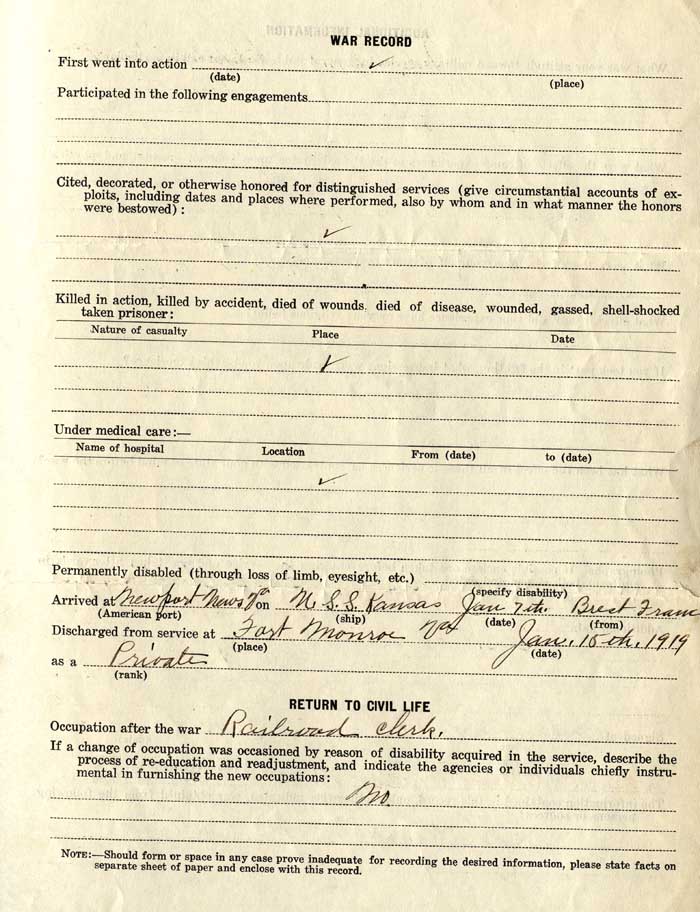 WAR RECORD
First went into action ✓
(date) (place)
Participated in the following engagements
Cited, decorated, or otherwise honored for distinguished services (give circumstantial accounts of ex-
ploits, including dates and places where performed, also by whom and in what manner the honors
were bestowed) :
✓
Killed in action, killed by accident, died of wounds. died of disease, wounded, gassed, shell-shocked
taken prisoner:
Nature of casualty Place Date
✓
Under medical care:—
Name of hospital Location From (date) to (date)
✓
Permanently disabled (through loss of limb, eyesight, etc.)
(specify disability)
Arrived at Newport News Va on U. S. S. Kansas Jan 7th. Brest Fran
(American port) (ship) (date) (from)
Discharged from service at Fort Monroe Va Jan. 15th, 1919
(place) (date)
as a Private
(rank)
RETURN TO CIVIL LIFE
Occupation after the war Railroad Clerk.
If a change of occupation was occasioned by reason of disability acquired in the service, describe the
process of re-education and readjustment, and indicate the agencies or individuals chiefly instru-
mental in furnishing the new occupations:
No.
NOTE:—Should form or space in any case prove inadequate for recording the desired information, please state facts on
separate sheet of paper and enclose with this record.